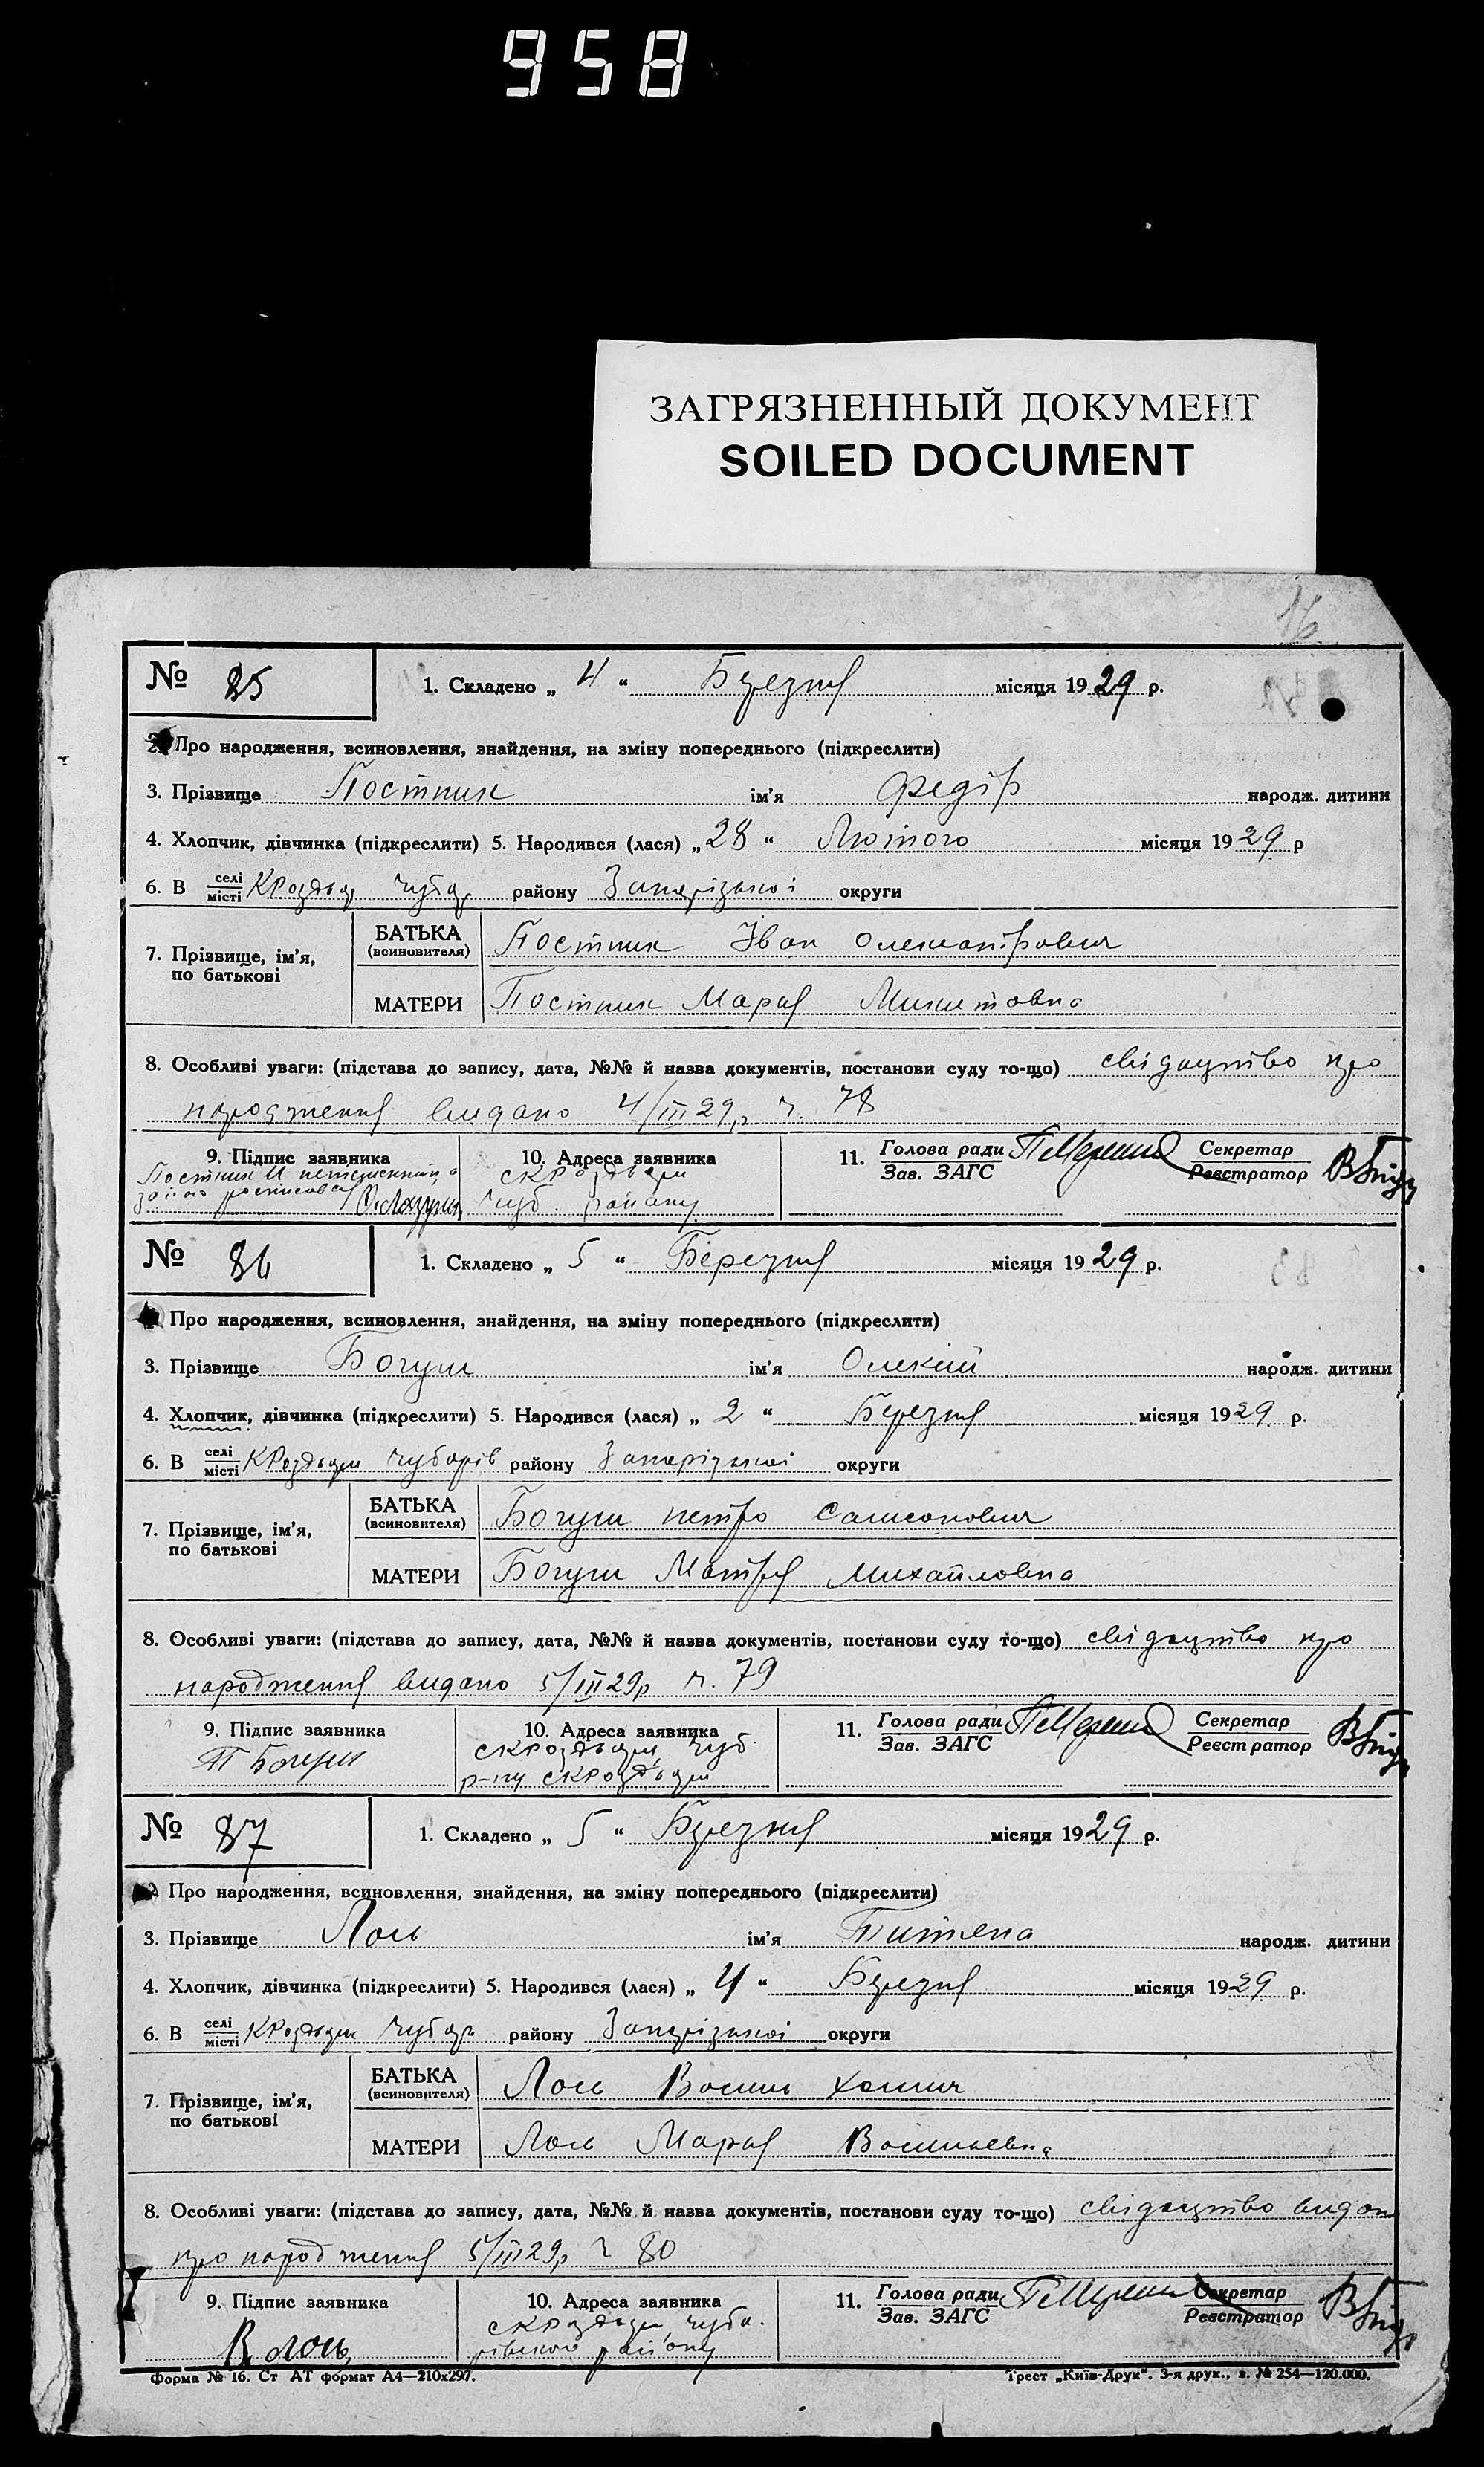 958
ЗАГРЯЗНЕННЫЙ ДОКУМЕНТ
SOILED DOCUMENT
16
№ 85 1. Складено „ 4 “ Березня місяця 1929 р.
2. Про народження, всиновлення, знайдення, на зміну попереднього (підкреслити)
3. Прізвище Постник ім’я Федір народж. дитини
4. Хлопчик, дівчинка (підкреслити) 5. Народився (лася) „ 28 “ Лютого місяця 1929 р
6. В селі місті КРоздори Чубар району Запорізької округи
7. Прізвище, ім’я, по батькові
БАТЬКА (всиновителя) Постник Іван Олександрович
МАТЕРИ Постник Мария Микитовна
8. Особливі уваги: (підстава до запису, дата, №№ й назва документів, постанови суду то-що) свідоцтво про
народження видано 4/III 29р ч. 78
9. Підпис заявника 10. Адреса заявника 11. Голова ради Зав. ЗАГС Секретар Реєстратор
Постник И неписменний, а
за його росписався
СКРоздори
Чуб. району
№ 86 1. Складено „ 5 “ Березня місяця 1929 р.
Про народження, всиновлення, знайдення, на зміну попереднього (підкреслити)
3. Прізвище Богуш ім’я Олекій народж. дитини
4. Хлопчик, дівчинка (підкреслити) 5. Народився (лася) „ 2 “ Березня місяця 1929 р.
6. В селі місті КРоздори Чубарів району Запорізької округи
7. Прізвище, ім’я, по батькові
БАТЬКА (всиновителя) Богуш петро Самсонович
МАТЕРИ Богуш Мотря Михайловна
8. Особливі уваги: (підстава до запису, дата, №№ й назва документів, постанови суду то-що) свідоцтво про
народження видано 5/III 29р ч. 79
9. Підпис заявника 10. Адреса заявника 11. Голова ради Зав. ЗАГС Секретар Реєстратор
П Богуш
СКРоздори, Чуб.
р-ну СКРоздори
№ 87 1. Складено „ 5 “ Березня місяця 1929 р.
Про народження, всиновлення, знайдення, на зміну попереднього (підкреслити)
3. Прізвище Лось ім’я Титяна народж. дитини
4. Хлопчик, дівчинка (підкреслити) 5. Народився (лася) „ 4 “ Березня місяця 1929 р.
6. В селі місті КРоздори Чубар району Запорізької округи
7. Прізвище, ім’я, по батькові
БАТЬКА (всиновителя) Лось Василь Хомич
МАТЕРИ Лось Мария Васильевна
8. Особливі уваги: (підстава до запису, дата, №№ й назва документів, постанови суду то-що) свідоцтво видан
про народження 5/III 29р ч 80
9. Підпис заявника 10. Адреса заявника 11. Голова ради Зав. ЗАГС Секретар Реєстратор
В лось
СКРоздори, Чуба-
рівского району
Форма № 16. Ст АТ формат А4—210x297. Трест „Київ-Друк“. 3-я друк., з. № 254—120.000.